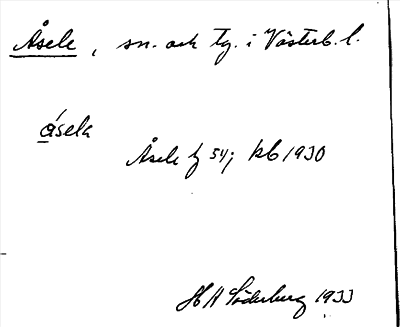 Åsele, sn. och tg. i Västerb. l.
åsela
Åsele tg 54; kb 1930
H A Söderberg 1933